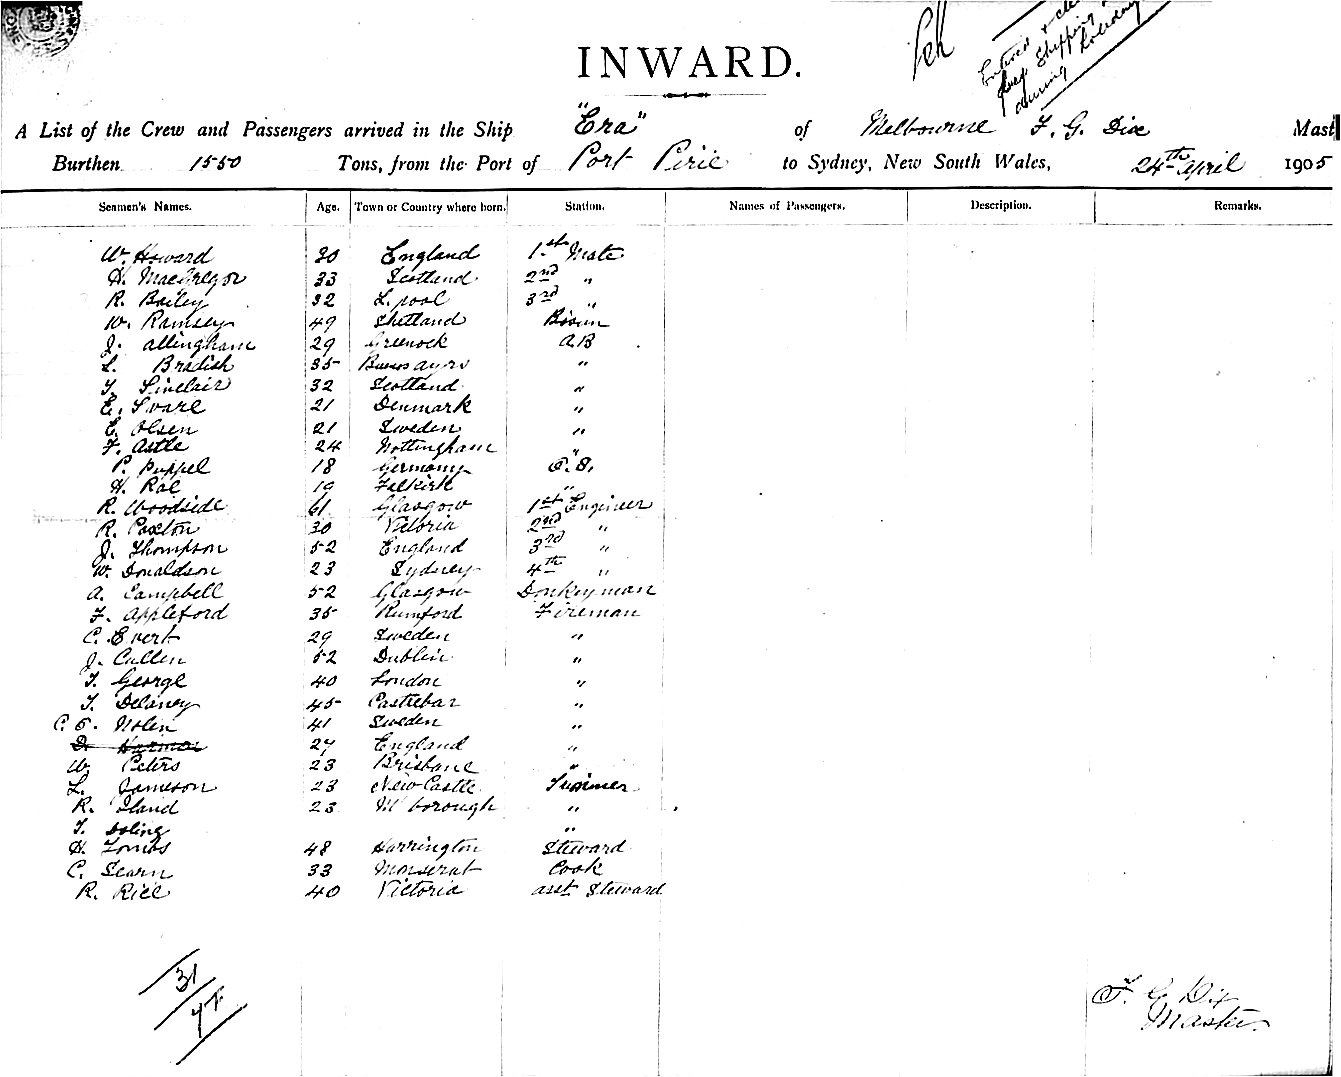 Entered & 
Shipping
during holiday
INWARD.
A List of the Crew and Passengers arrived in the Ship "Era" of Melbourne F. G. Dix Mast
Burthen 1550 Tons, from the Port of Port Pirie to Sydney, New South Wales, 24th April 1905
Seamen's Names. Age. Town or Country where born. Station. Names of Passengers. Description. Remarks.
W. Howard 30 England 1st Mate
H. MacGregor 33 Scotland 2nd "
R. Bailey 32 L.pool 3rd "
W. Ramsey 49 Shetland Bosun
J. Allingham 29 Greenock A.B
L. Bradish 35 Buenos Ayres "
T. Sinclair 32 Scotland "
E. Svare 21 Denmark "
E. Olsen 21 Sweden "
F. Astle 24 Nottingham "
P. Puppel 18 Germany O.S.
H. Rae 19 Falkirk "
R. Woodside 61 Glasgow 1st Engineer
R. Paxton 30 Victoria 2nd "
J. Thompson 52 England 3rd "
W. Donaldson 23 Sydney 4th "
A. Campbell 52 Glasgow Donkeyman
F. Appleford 35 Rumford Fireman
C. Evert 29 Sweden "
J. Cullen 52 Dublin "
T. George 40 London "
T. Delaney 45 Castlebar "
C. O. Nolin 41 Sweden "
D. Harman 27 England "
W. Peters 23 Brisbane "
L. Jameson 23 New Castle Trimmer
R. Iland 23 M'borough "
T. Doling "
H. Tombs 48 Harrington Steward
C. Searn 33 Monserat Cook
R. Rice 40 Victoria asst Steward
31
F. G. Dix
Master